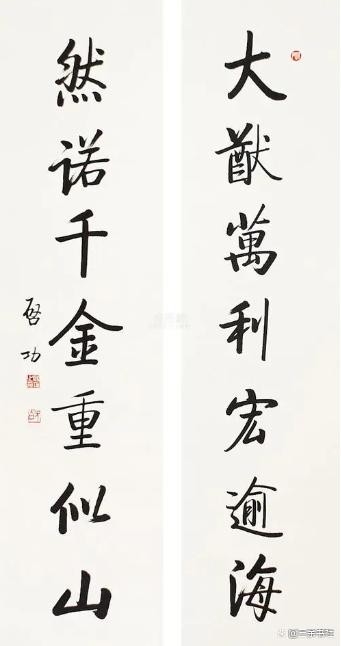 大猷萬利宏逾海
然诺千金重似山
启功